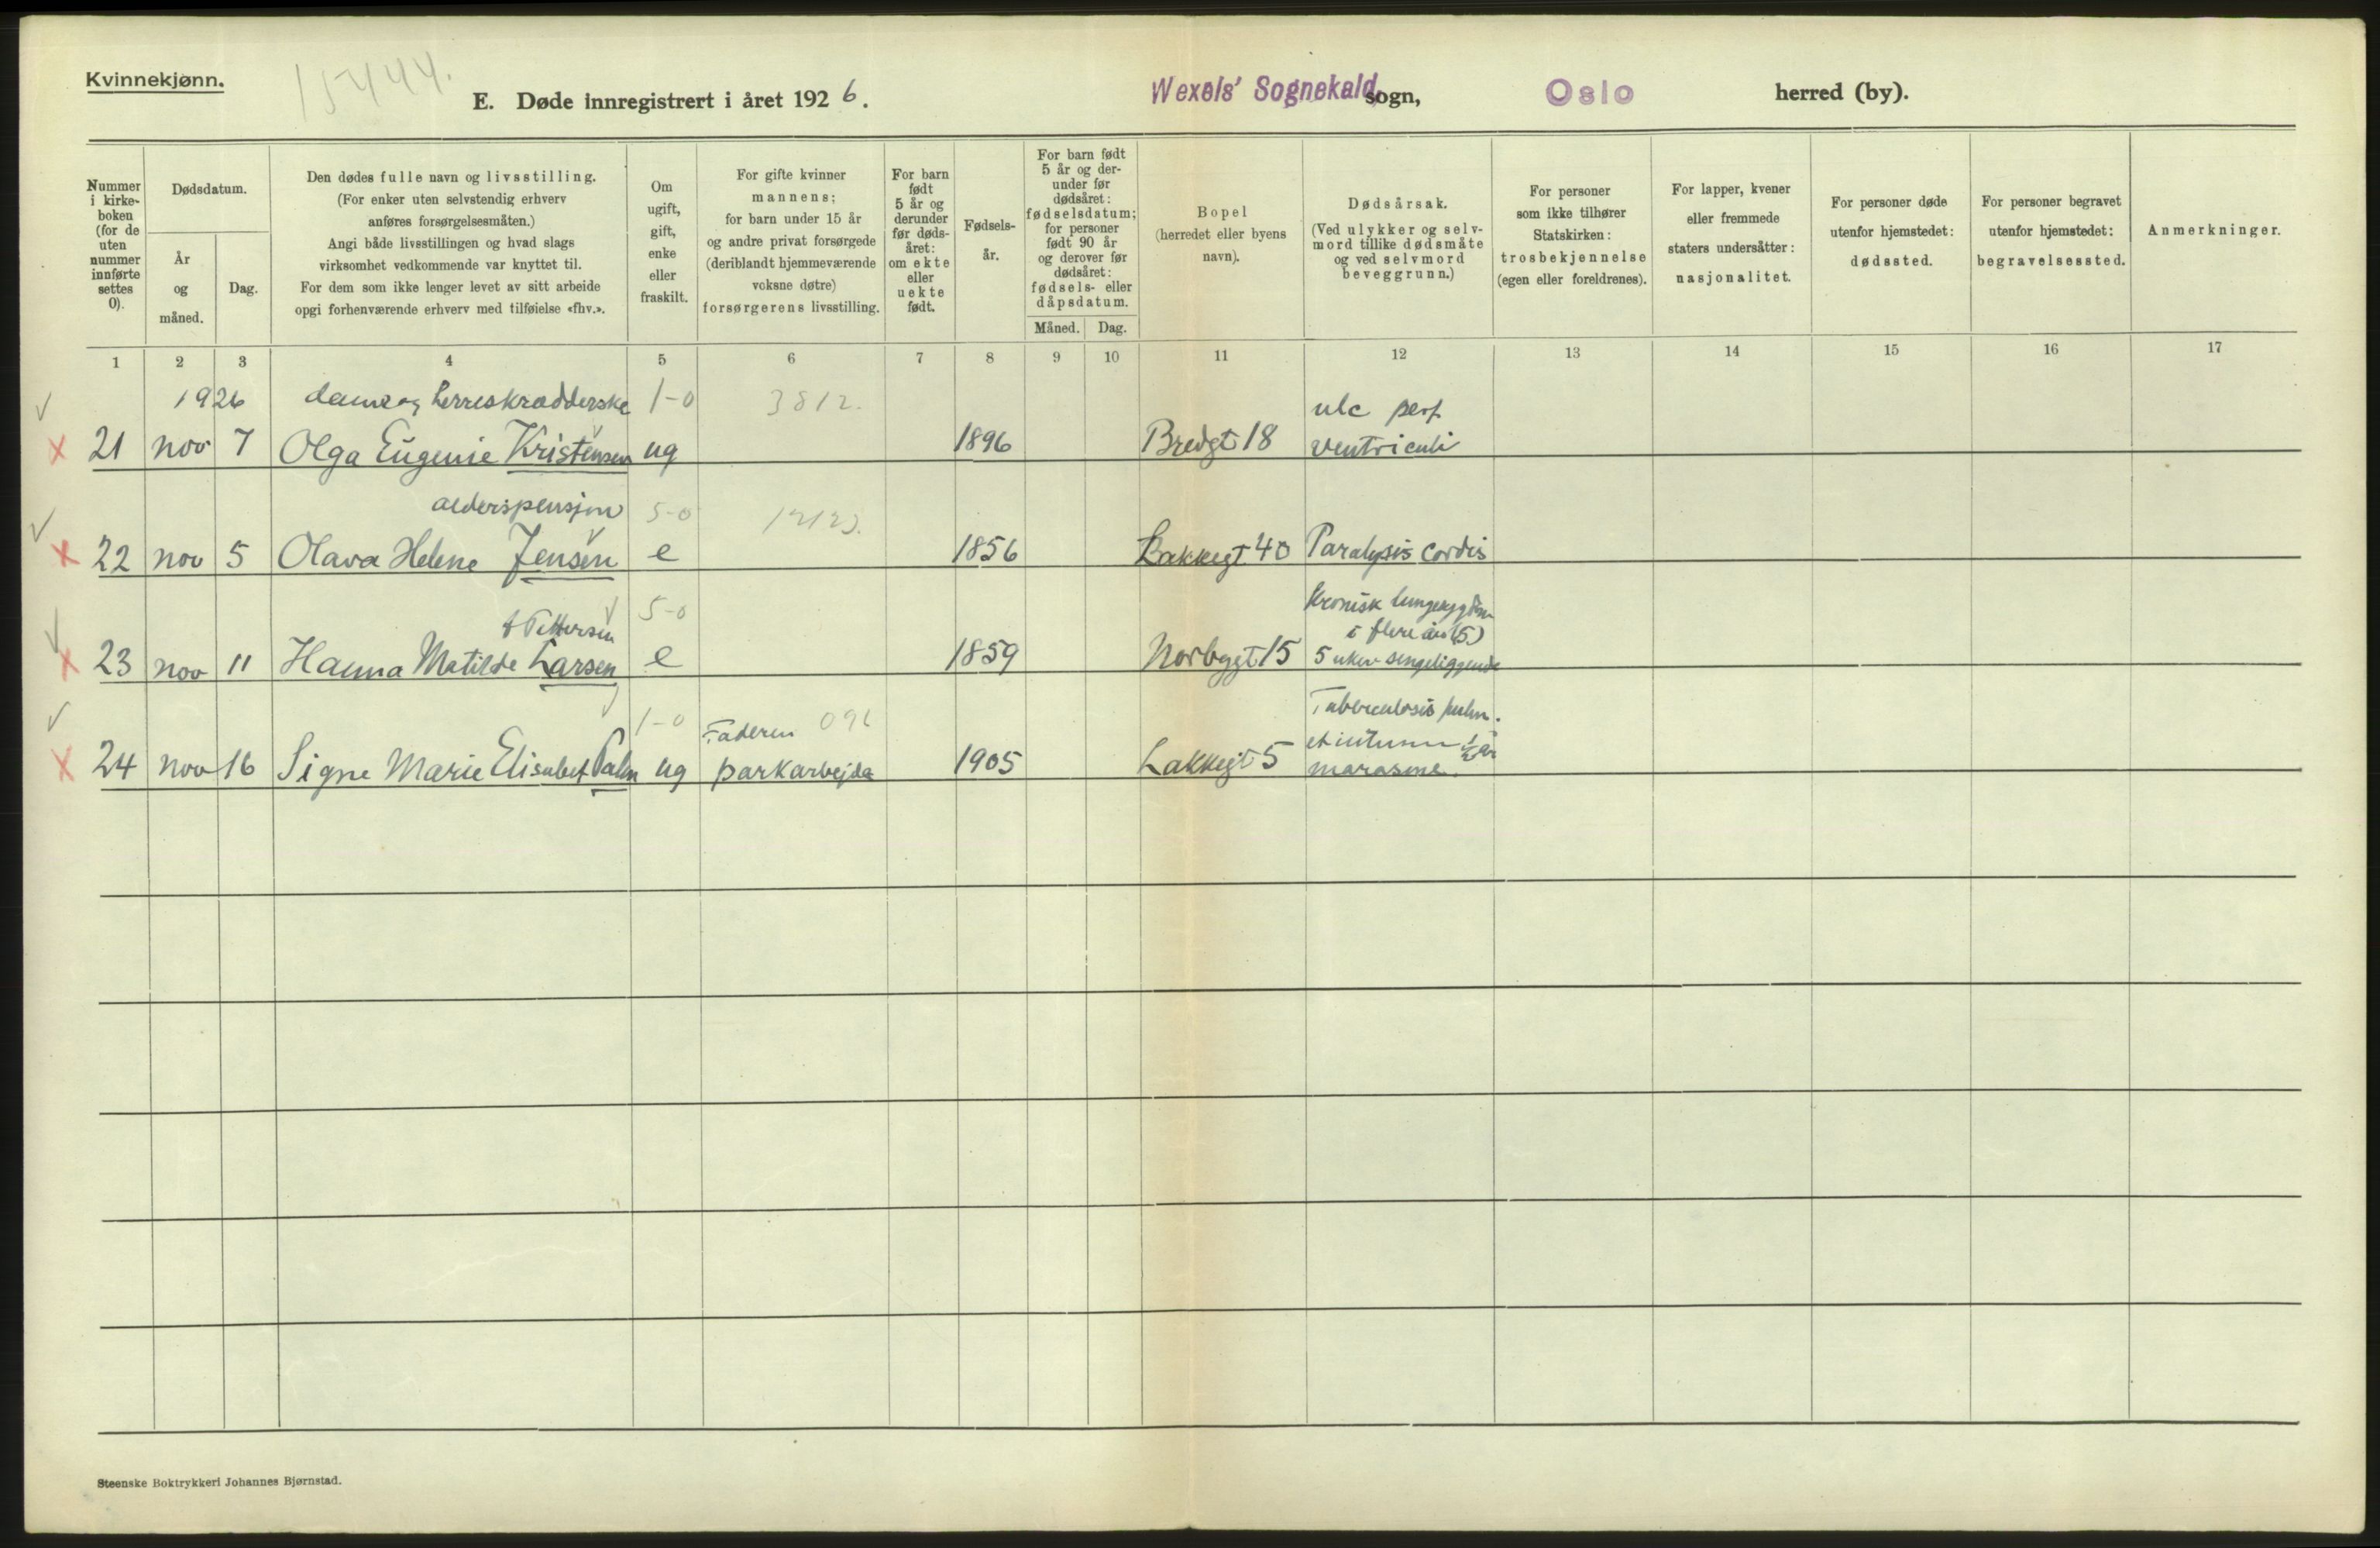 Kvinnekjønn.
15444.
E. Døde innregistrert i året 1926.
Wexels' Sognekald sogn,
Oslo
herred (by).
Nummer i kirkeboken (for de uten nummer innførte settes 0).
Dødsdatum.
År og måned.
Dag.
Den dødes fulle navn og livsstilling.
(For enker uten selvstendig erhverv
anføres forsørgelsesmåten.)
Angi både livsstillingen og hvad slags
virksomhet vedkommende var knyttet til.
For dem som ikke lenger levet av sitt arbeide
opgi forhenværende erhverv med tilføielse «fhv.».
Om
ugift,
gift,
enke
eller
fraskilt.
For gifte kvinner
mannens;
for barn under 15 år
og andre privat forsørgede
(deriblandt hjemmeværende
voksne døtre)
forsørgerens livsstilling.
For barn
født
5 år og
derunder
før døds-
året:
om ekte
eller
uekte
født.
Fødsels-
år.
For barn født
5 år og der-
under før
dødsåret:
fødselsdatum;
for personer
født 90 år
og derover før
dødsåret:
fødsels- eller
dåpsdatum.
Måned.
Dag.
Bopel
(herredet eller byens
navn).
Dødsårsak.
(Ved ulykker og selv-
mord tillike dødsmåte
og ved selvmord
beveggrunn.)
For personer
som ikke tilhører
Statskirken:
trosbekjennelse
(egen eller foreldrenes).
For lapper, kvener
eller fremmede
staters undersåtter:
nasjonalitet.
For personer døde
utenfor hjemstedet:
dødssted.
For personer begravet
utenfor hjemstedet:
begravelsessted.
Anmerkninger.
1 2 3 4 5 6 7 8 9 10 11 12 13 14 15 16 17
1926 dame og herreskrædderske 1-0 3812. ulc perf
21 nov 7 Olga Eugenie Kristensen ug 1896 Bredgt 18 ventriculi
alderspensjon 5-0
22 nov 5 Olava Helene Jensen e 1856 Bakkegt 40 Paralysis cordis
f Pettersen 5-0 Kronisk lungesygdom
i flere år (5)
23 nov 11 Hanna Matilde Larsen e 1859 Norbygt 15 5 uker sengeliggende
1-0 Faderen Tuberculosis pulm.
et intum ½ år
24 nov 16 Signe Marie Elisabet Palm ug parkarbejder 1905 Lakkegt 5 marasme.
Steenske Boktrykkeri Johannes Bjørnstad.